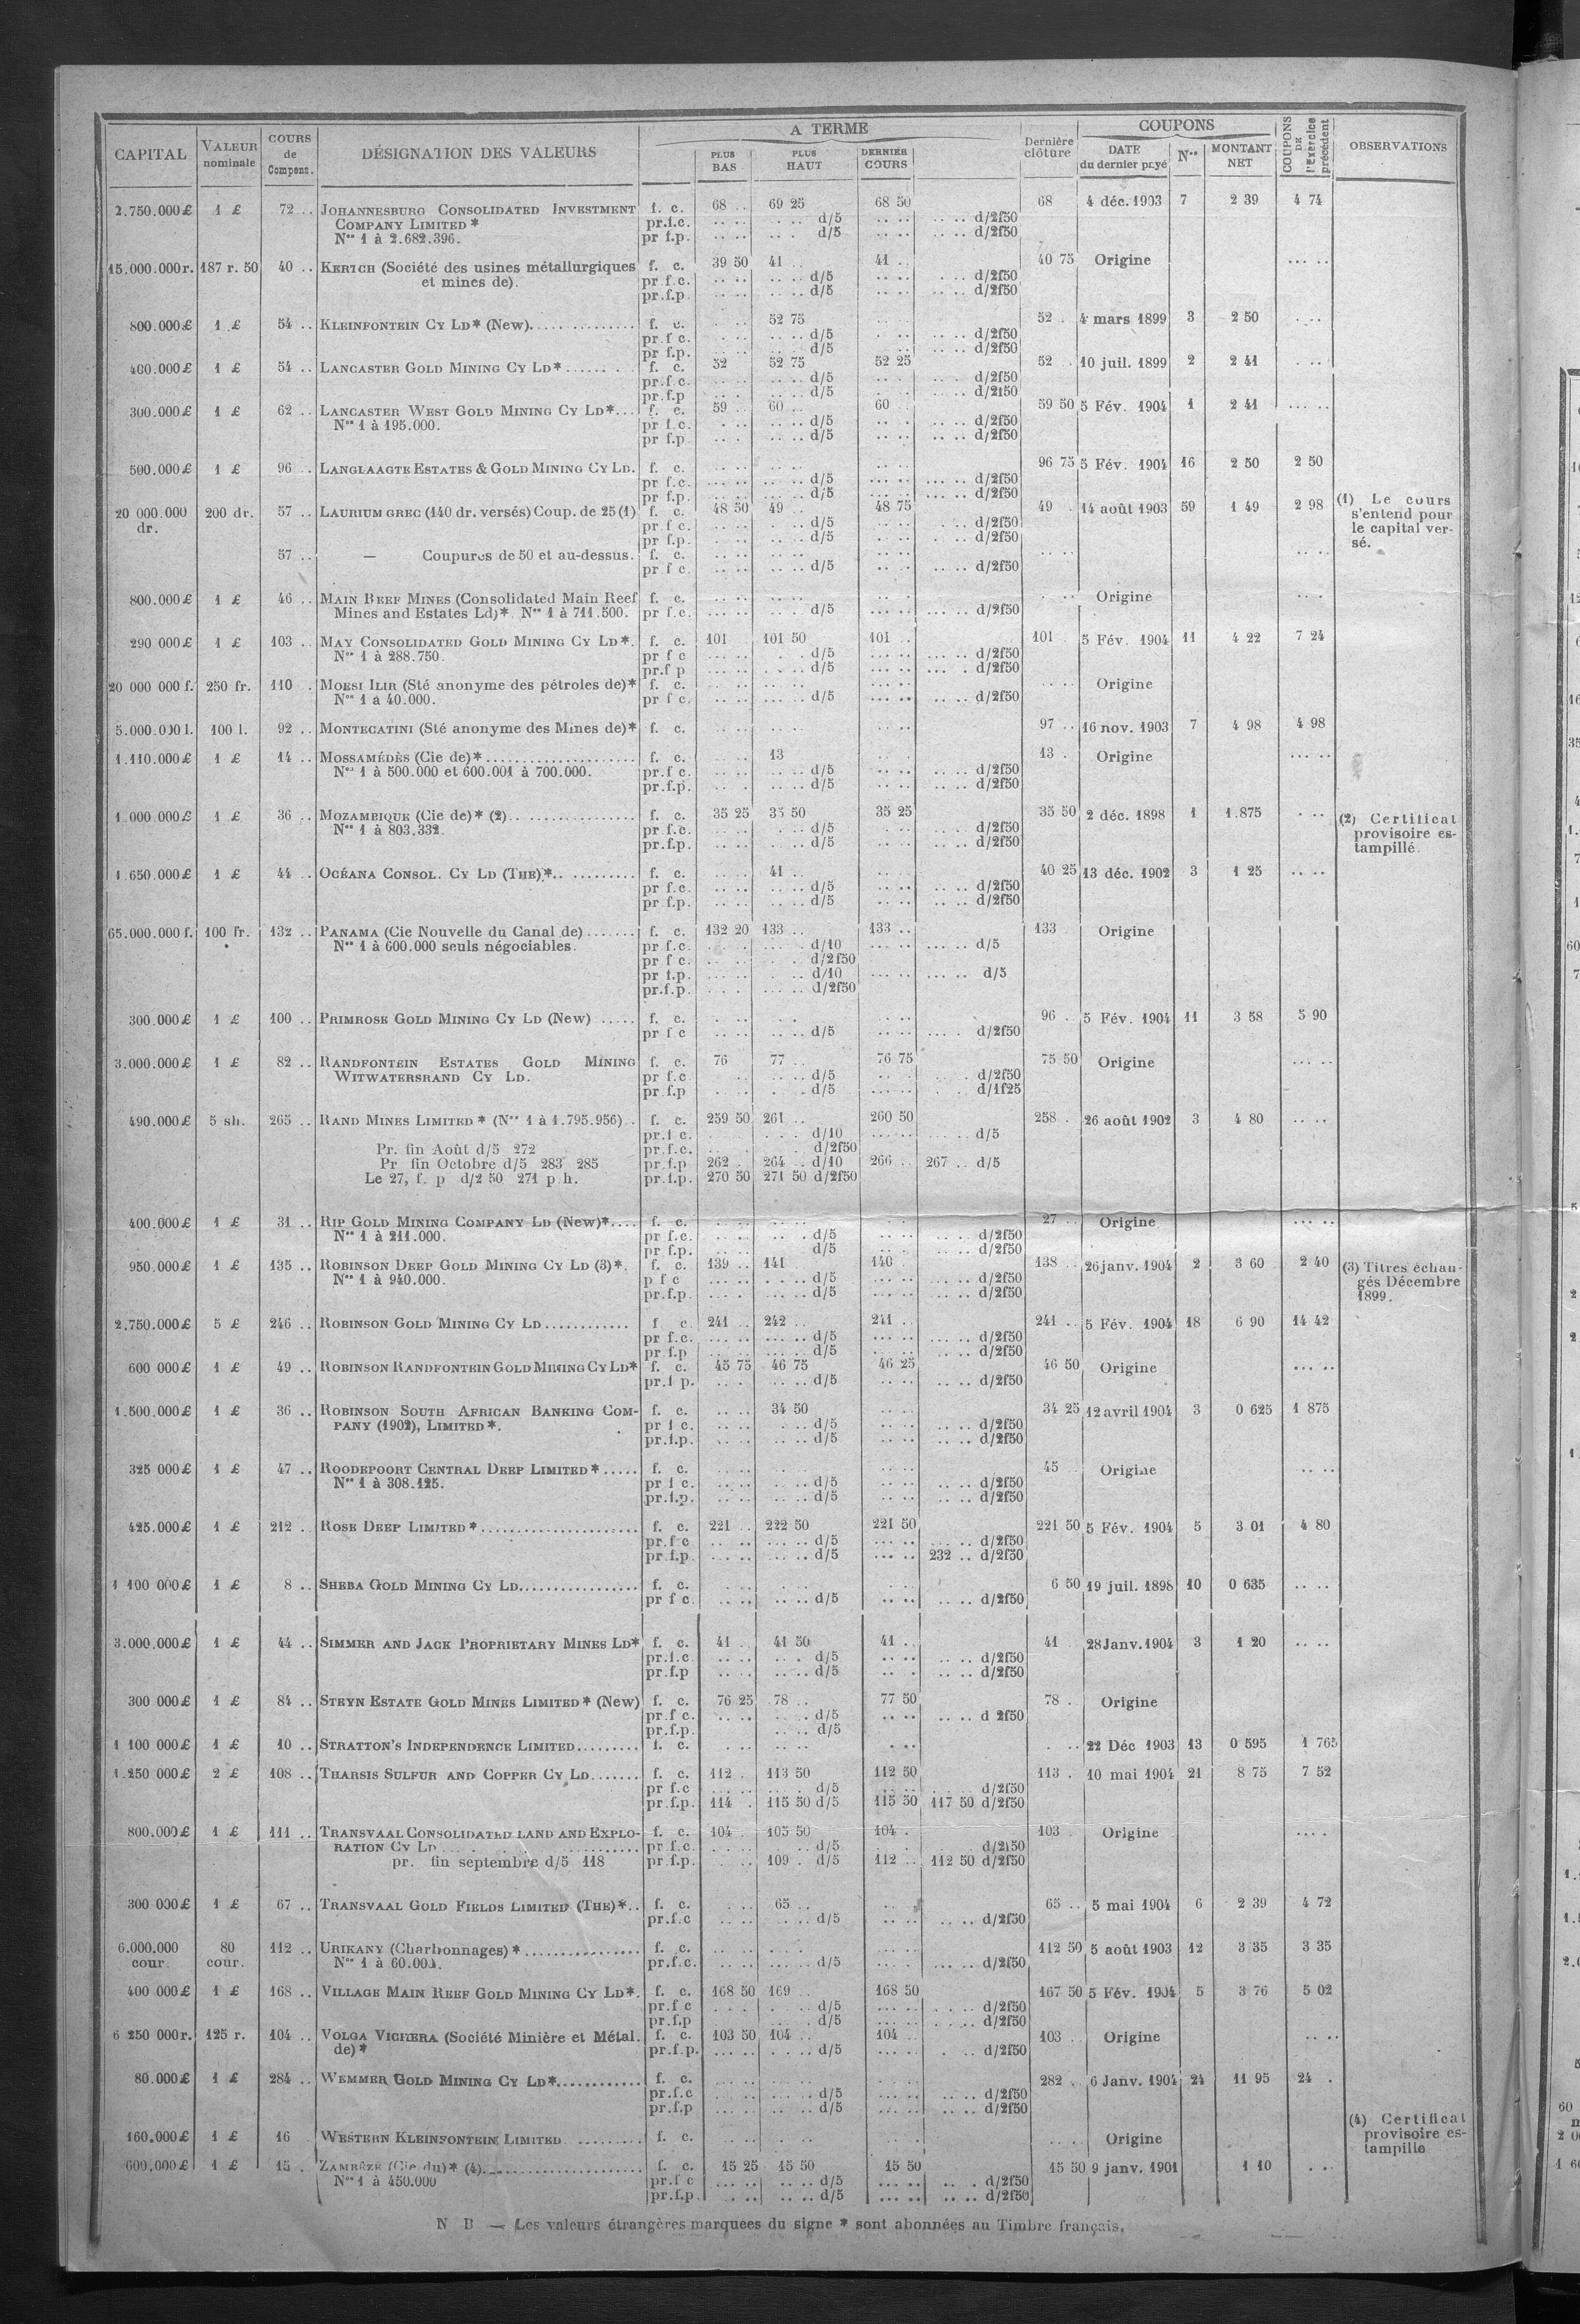 CAPITAL VALEUR nominale COURS de Compens. DÉSIGNATION DES VALEURS A TERME PLUS BAS PLUS HAUT DERNIER COURS Dernière clôture COUPONS DATE du dernier payé Nos MONTANT NET COUPONS DE l'Exercice précédent OBSERVATIONS
2.750.000£ 1 £ 72 .. JOHANNESBURG CONSOLIDATED INVESTMENT f. c. 68 .. 69 25 68 50 68 4 déc. 1903 7 2 39 4 74
COMPANY LIMITED* pr.f.c. .. .. .. .. d/5 .. .. .. .. d/2f50
Nos 1 à 2.682.396. pr f.p. .. .. .. . d/5 .. .. .. .. d/2f50
15.000.000r. 187 r. 50 40 .. KERTCH (Société des usines métallurgiques f. c. 39 50 41 .. 41 .. 40 75 Origine .. ..
et mines de). pr f.c. .. .. .. .. d/5 .. .. .. .. d/2f50
pr.f.p. .. .. .. .. d/5 .. .. .. .. d/2f50
800.000£ 1 £ 54 .. KLEINFONTEIN CY LD* (New). f. c. 52 75 52 . 4 mars 1899 3 2 50
pr f c. .. .. .. .. d/5 .. .. .. .. d/2f50
pr f.p. .. .. .. .. d/5 .. .. .. .. d/2f50
400.000£ 1 £ 54 .. LANCASTER GOLD MINING CY LD* f. c. 52 52 75 52 25 52 .. 10 juil. 1899 2 2 41
pr.f.c. .. .. .. .. d/5 .. .. .. .. d/2f50
pr.f.p .. .. .. .. d/5 .. .. .. .. d/2f50
300.000£ 1 £ 62 .. LANCASTER WEST GOLD MINING CY LD*. f. c. 59 .. 60 .. 60 .. 59 50 5 Fév. 1904 1 2 41 .. ..
Nos 1 à 195.000. pr f.c. .. .. .. .. d/5 .. .. .. .. d/2f50
pr f.p .. .. .. .. d/5 .. .. .. .. d/2f50
500.000£ 1 £ 96 .. LANGLAAGTE ESTATES & GOLD MINING CY LD. f. c. .. .. .. .. .. .. 96 75 5 Fév. 1904 16 2 50 2 50
pr f.c. .. .. .. .. d/5 .. .. .. .. d/2f50
pr f.p. .. .. .. .. d/5 .. .. .. .. d/2f50
20 000.000 dr. 200 dr. 57 .. LAURIUM GREC (140 dr. versés) Coup. de 25 (1) f. c. 48 50 49 .. 48 75 49 . 14 août 1903 59 1 49 2 98 (1) Le cours s'entend pour le capital versé.
pr f c. .. .. .. .. d/5 .. .. .. .. d/2f50
pr f.p. .. .. .. .. d/5 .. .. .. .. d/2f50
57 .. — Coupures de 50 et au-dessus. f. c. .. .. .. .. .. .. .. .. .. ..
pr f c. .. .. .. .. d/5 .. .. .. .. d/2f50
800.000£ 1 £ 46 .. MAIN REEF MINES (Consolidated Main Reef f. c. .. .. .. .. .. .. Origine
Mines and Estates Ld)* Nos 1 à 711.500. pr f.c. .. .. .. .. d/5 .. .. .. .. d/2f50
290 000£ 1 £ 103 .. MAY CONSOLIDATED GOLD MINING CY LD*. f. c. 101 101 50 101 .. 101 . 5 Fév. 1904 11 4 22 7 24
Nos 1 à 288.750. pr f c .. .. .. .. d/5 .. .. .. .. d/2f50
pr.f p .. .. .. .. d/5 .. .. .. .. d/2f50
20 000 000 f. 250 fr. 110 . MOESI ILIR (Sté anonyme des pétroles de)* f. c. .. .. .. .. .. .. Origine
Nos 1 à 40.000. pr f c. .. .. .. .. d/5 .. .. .. .. d/2f50
5.000.000 l. 100 l. 92 .. MONTECATINI (Sté anonyme des Mines de)* f. c. .. .. .. .. .. .. 97 .. 16 nov. 1903 7 4 98 4 98
1.110.000£ 1 £ 14 .. MOSSAMÉDÈS (Cie de)* f. c. 13 13 . Origine .. ..
Nos 1 à 500.000 et 600.001 à 700.000. pr.f c. .. .. .. .. d/5 .. .. .. .. d/2f50
pr.f.p. .. .. .. .. d/5 .. .. .. .. d/2f50
1.000.000£ 1 £ 36 .. MOZAMBIQUE (Cie de)* (2) f. c. 35 25 35 50 35 25 35 50 2 déc. 1898 1 1.875 (2) Certificat provisoire estampillé.
Nos 1 à 803.332. pr f.c. .. .. .. .. d/5 .. .. .. .. d/2f50
pr.f.p. .. .. .. .. d/5 .. .. .. .. d/2f50
1.650.000£ 1 £ 44 .. OCÉANA CONSOL. CY LD (THE)*. f. c. 41 .. 40 25 13 déc. 1902 3 1 25 .. ..
pr f.c. .. .. .. .. d/5 .. .. .. .. d/2f50
pr f.p. .. .. .. .. d/5 .. .. .. .. d/2f50
65.000.000 f. 100 fr. 132 .. PANAMA (Cie Nouvelle du Canal de) f. c. 132 20 133 .. 133 .. 133 Origine
Nos 1 à 600.000 seuls négociables. pr f.c. .. .. d/10 .. .. .. .. d/5
pr f c. .. .. d/2f50
pr f.p. .. .. d/10 .. .. .. .. d/5
pr.f.p. .. .. d/2f50
300.000£ 1 £ 100 .. PRIMROSE GOLD MINING CY LD (New) f. c. .. .. .. .. 96 .. 5 Fév. 1904 11 3 58 5 90
pr f c .. .. .. .. d/5 .. .. .. .. d/2f50
3.000.000£ 1 £ 82 .. RANDFONTEIN ESTATES GOLD MINING f. c. 76 77 .. 76 75 75 50 Origine .. ..
WITWATERSRAND CY LD. pr f.c .. .. .. .. d/5 .. .. .. .. d/2f50
pr f.p .. .. .. .. d/5 .. .. .. .. d/1f25
490.000£ 5 sh. 265 .. RAND MINES LIMITED* (Nos 1 à 1.795.956) f. c. 259 50 261 .. 260 50 258 . 26 août 1902 3 4 80 .. ..
pr.f c. .. .. d/10 .. .. .. .. d/5
Pr. fin Août d/5 272 pr.f.c. .. .. d/2f50
Pr fin Octobre d/5 283 285 pr.f.p 262 . 264 .. d/10 266 .. 267 .. d/5
Le 27, f. p d/2 50 271 p h. pr.f.p. 270 50 271 50 d/2f50
400.000£ 1 £ 31 .. RIP GOLD MINING COMPANY LD (New)* f. c. .. .. .. .. 27 .. Origine .. ..
Nos 1 à 211.000. pr f.c. .. .. .. .. d/5 .. .. .. .. d/2f50
pr f.p. .. .. d/5 .. .. .. .. d/2f50
950.000£ 1 £ 135 .. ROBINSON DEEP GOLD MINING CY LD (3)*. f. c. 139 .. 141 140 138 .. 26 janv. 1904 2 3 60 2 40 (3) Titres échangés Décembre 1899.
Nos 1 à 940.000. p f c .. .. .. .. d/5 .. .. .. .. d/2f50
pr.f.p. .. .. .. .. d/5 .. .. .. .. d/2f50
2.750.000£ 5 £ 246 .. ROBINSON GOLD MINING CY LD f c. 241 .. 242 .. 241 .. 241 .. 5 Fév. 1904 18 6 90 14 42
pr f.c. .. .. .. .. d/5 .. .. .. .. d/2f50
pr f.p .. .. .. .. d/5 .. .. .. .. d/2f50
600 000£ 1 £ 49 .. ROBINSON RANDFONTEIN GOLD MINING CY LD* f. c. 45 75 46 75 46 25 46 50 Origine .. ..
pr.f p. .. .. .. .. d/5 .. .. .. .. d/2f50
1.500.000£ 1 £ 36 .. ROBINSON SOUTH AFRICAN BANKING COM- f. c. .. .. 34 50 34 25 12 avril 1904 3 0 625 1 875
PANY (1902), LIMITED*. pr f c. .. .. .. .. d/5 .. .. .. .. d/2f50
pr.f.p. .. .. .. .. d/5 .. .. .. .. d/2f50
325 000£ 1 £ 47 .. ROODEPOORT CENTRAL DEEP LIMITED* f. c. .. .. .. .. 45 Origine .. ..
Nos 1 à 308.125. pr f c. .. .. .. .. d/5 .. .. .. .. d/2f50
pr.f.p. .. .. .. .. d/5 .. .. .. .. d/2f50
425.000£ 1 £ 212 .. ROSE DEEP LIMITED* f. c. 221 .. 222 50 221 50 221 50 5 Fév. 1904 5 3 01 4 80
pr.f c .. .. .. .. d/5 .. .. .. .. d/2f50
pr f.p .. .. .. .. d/5 .. .. 232 .. d/2f50
1 100 000£ 1 £ 8 .. SHEBA GOLD MINING CY LD f. c. .. .. .. .. 6 50 19 juil. 1898 10 0 635 .. ..
pr f c. .. .. .. .. d/5 .. .. .. .. d/2f50
3.000.000£ 1 £ 44 .. SIMMER AND JACK PROPRIETARY MINES LD* f. c. 41 .. 41 50 41 .. 41 28 Janv. 1904 3 1 20 .. ..
pr.f.c .. .. .. . d/5 .. .. .. .. d/2f50
pr.f.p .. .. .. .. d/5 .. .. .. .. d/2f50
300 000£ 1 £ 84 .. STEYN ESTATE GOLD MINES LIMITED* (New) f. c. 76 25 78 .. 77 50 78 . Origine
pr.f c. .. .. .. .. d/5 .. .. .. .. d 2f50
pr.f.p. .. .. d/5
1 100 000£ 1 £ 10 .. STRATTON'S INDEPENDENCE LIMITED f. c. .. .. .. .. .. .. 22 Déc 1903 13 0 595 1 765
1.250 000£ 2 £ 108 .. THARSIS SULFUR AND COPPER CY LD f. c. 112 . 113 50 112 50 113 . 10 mai 1904 21 8 75 7 52
pr f.c .. .. .. .. d/5 .. .. .. .. d/2f50
pr.f.p. 114 . 115 50 d/5 115 50 117 50 d/2f50
800.000£ 1 £ 111 .. TRANSVAAL CONSOLIDATED LAND AND EXPLO- f. c. 104 . 105 50 104 . 103 . Origine
RATION CY LD pr f.c. .. .. d/5 .. .. d/2f50
pr. fin septembre d/5 118 pr f.p. .. .. 109 . d/5 112 .. 112 50 d/2f50
300 000£ 1 £ 67 .. TRANSVAAL GOLD FIELDS LIMITED (THE)*. f. c. 65 .. 65 .. 5 mai 1904 6 2 39 4 72
pr.f.c .. .. .. .. d/5 .. .. .. .. d/2f50
6.000,000 cour. 80 cour. 112 .. URIKANY (Charbonnages)* f. c. .. .. .. .. 112 50 5 août 1903 12 3 35 3 35
Nos 1 à 60.000. pr.f.c. .. .. .. .. d/5 .. .. .. .. d/2f50
400 000£ 1 £ 168 .. VILLAGE MAIN REEF GOLD MINING CY LD*. f. c. 168 50 169 .. 168 50 167 50 5 Fév. 1904 5 3 76 5 02
pr.f c .. .. .. .. d/5 .. .. .. .. d/2f50
pr.f.p .. .. .. .. d/5 .. .. .. .. d/2f50
6 250 000r. 125 r. 104 .. VOLGA VICHERA (Société Minière et Métal. f. c. 103 50 104 .. 104 .. 103 . Origine .. ..
de)* pr.f.p. .. .. .. .. d/5 .. .. .. .. d/2f50
80.000£ 1 £ 284 .. WEMMER GOLD MINING CY LD* f. c. .. .. .. .. 282 . 6 Janv. 1904 24 11 95 24 .
pr.f.c .. .. .. .. d/5 .. .. .. .. d/2f50
pr.f.p .. .. .. .. d/5 .. .. .. .. d/2f50
160.000£ 1 £ 16 . WESTERN KLEINFONTEIN LIMITED f. c. .. .. .. .. Origine (4) Certificat provisoire estampillé
600,000£ 1 £ 15 . ZAMBÈZE (Cie du)* (4) f. c. 15 25 15 50 15 50 15 50 9 janv. 1901 1 10
Nos 1 à 450.000 pr.f c .. .. .. .. d/5 .. .. .. .. d/2f50
pr.f.p .. .. .. .. d/5 .. .. .. .. d/2f50
N B — Les valeurs étrangères marquées du signe * sont abonnées au Timbre français.